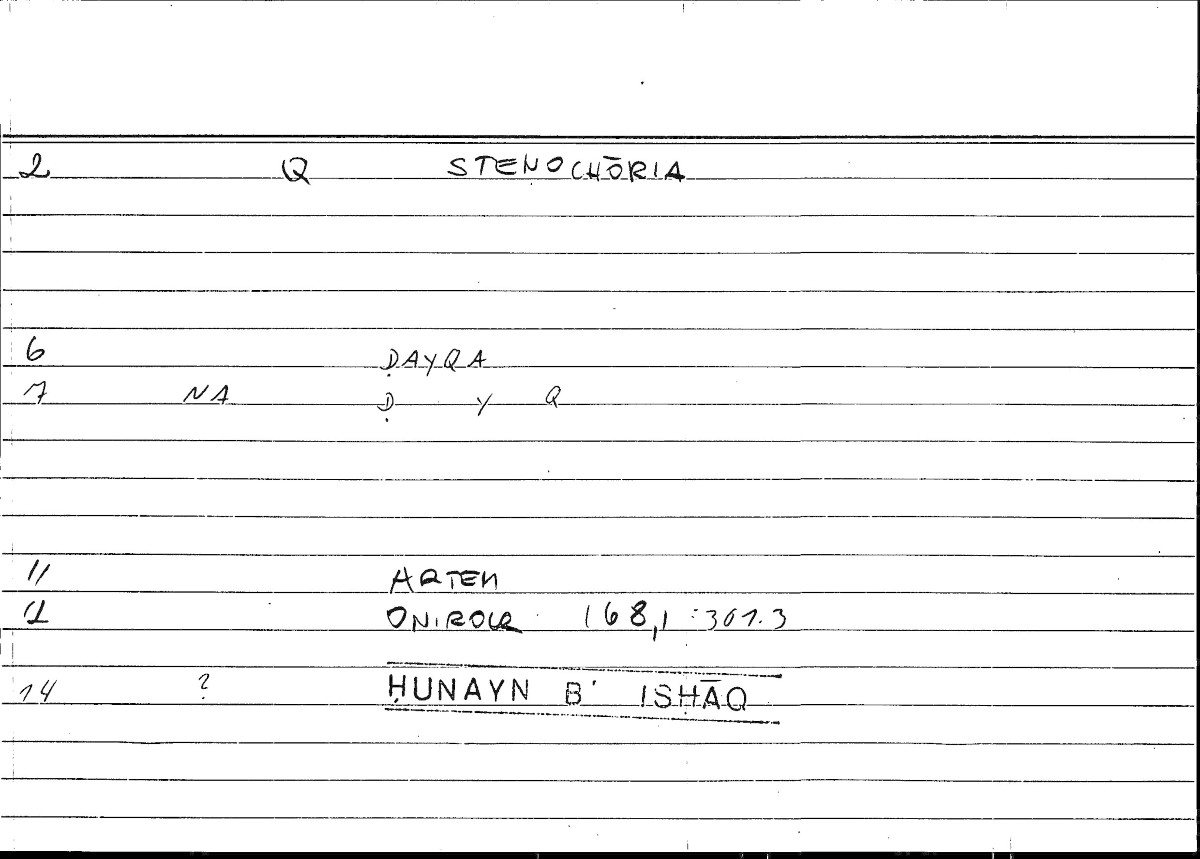 2 Q STENOCHŌRIA
6 ḌAYQA
7 NA Ḍ Y Q
11 ARTEM
12 ONIROCR 168,1 :301.3
14 ? ḤUNAYN B' ISḤĀQ